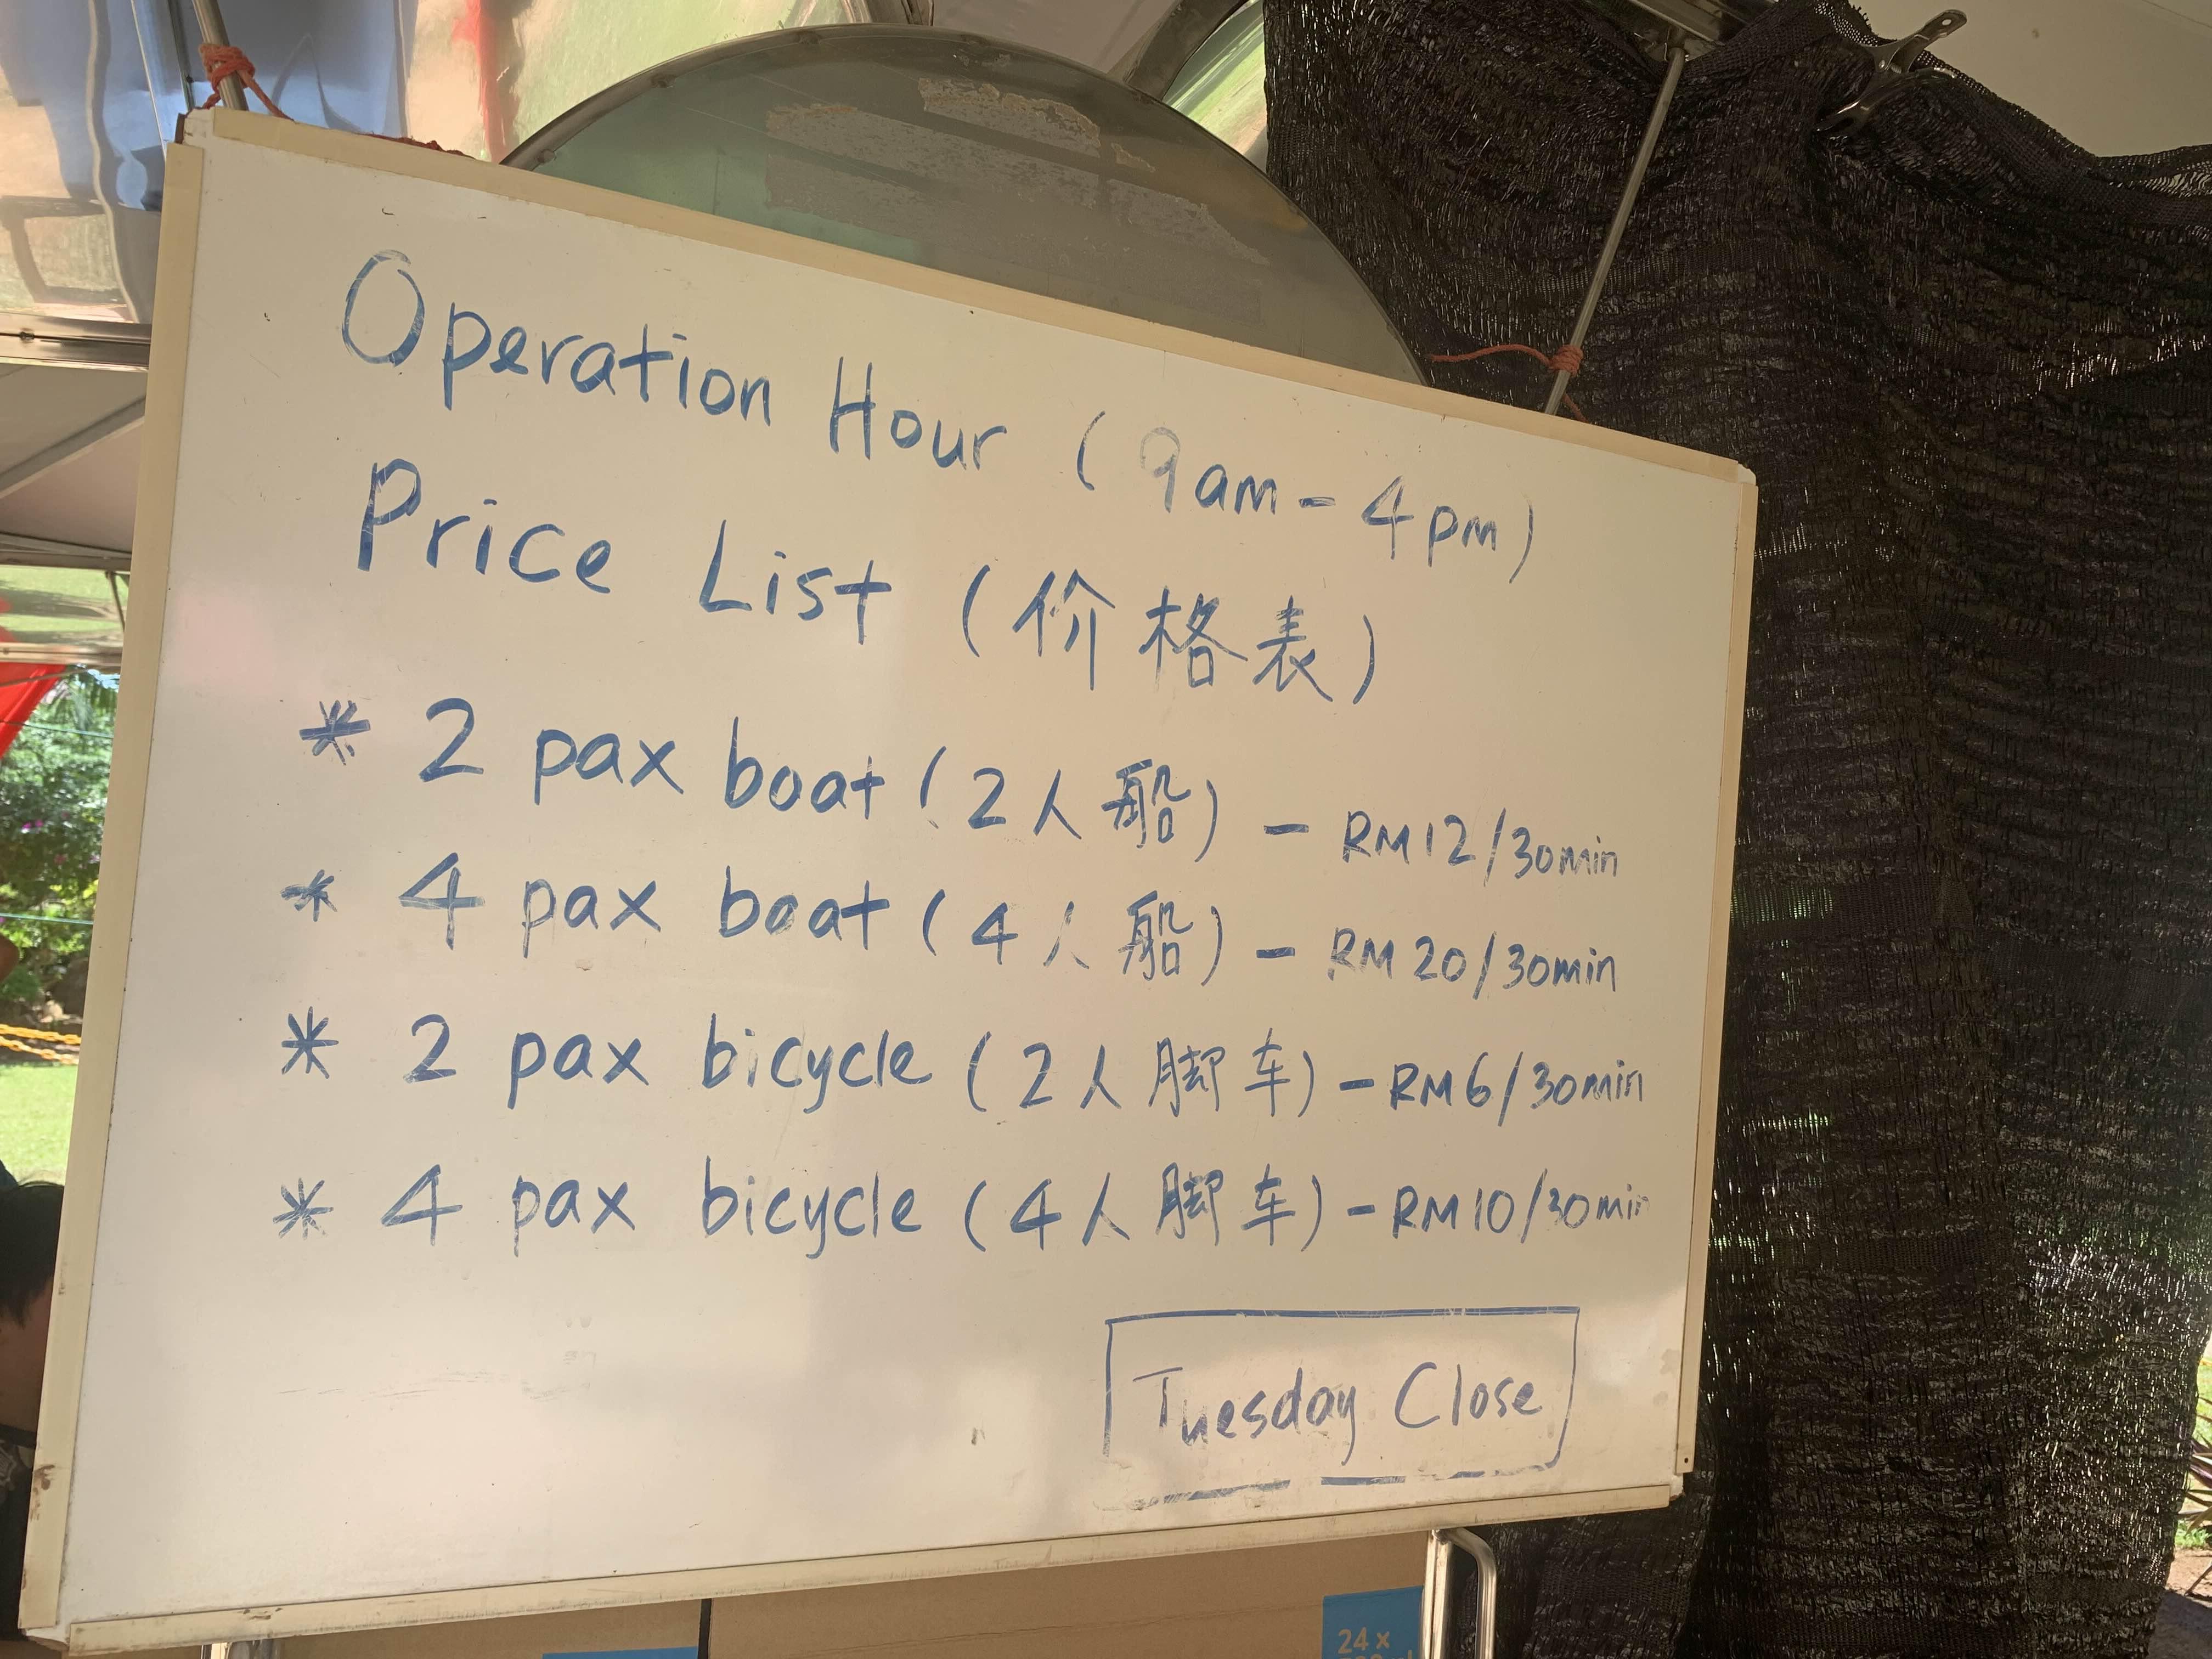 Operation Hour (9am - 4pm)
Price List (价格表)
* 2 pax boat (2人船) - RM12/30min
* 4 pax boat (4人船) - RM20/30min
* 2 pax bicycle (2人脚车) - RM6/30min
* 4 pax bicycle (4人脚车) - RM10/30min
Tuesday Close
24 x